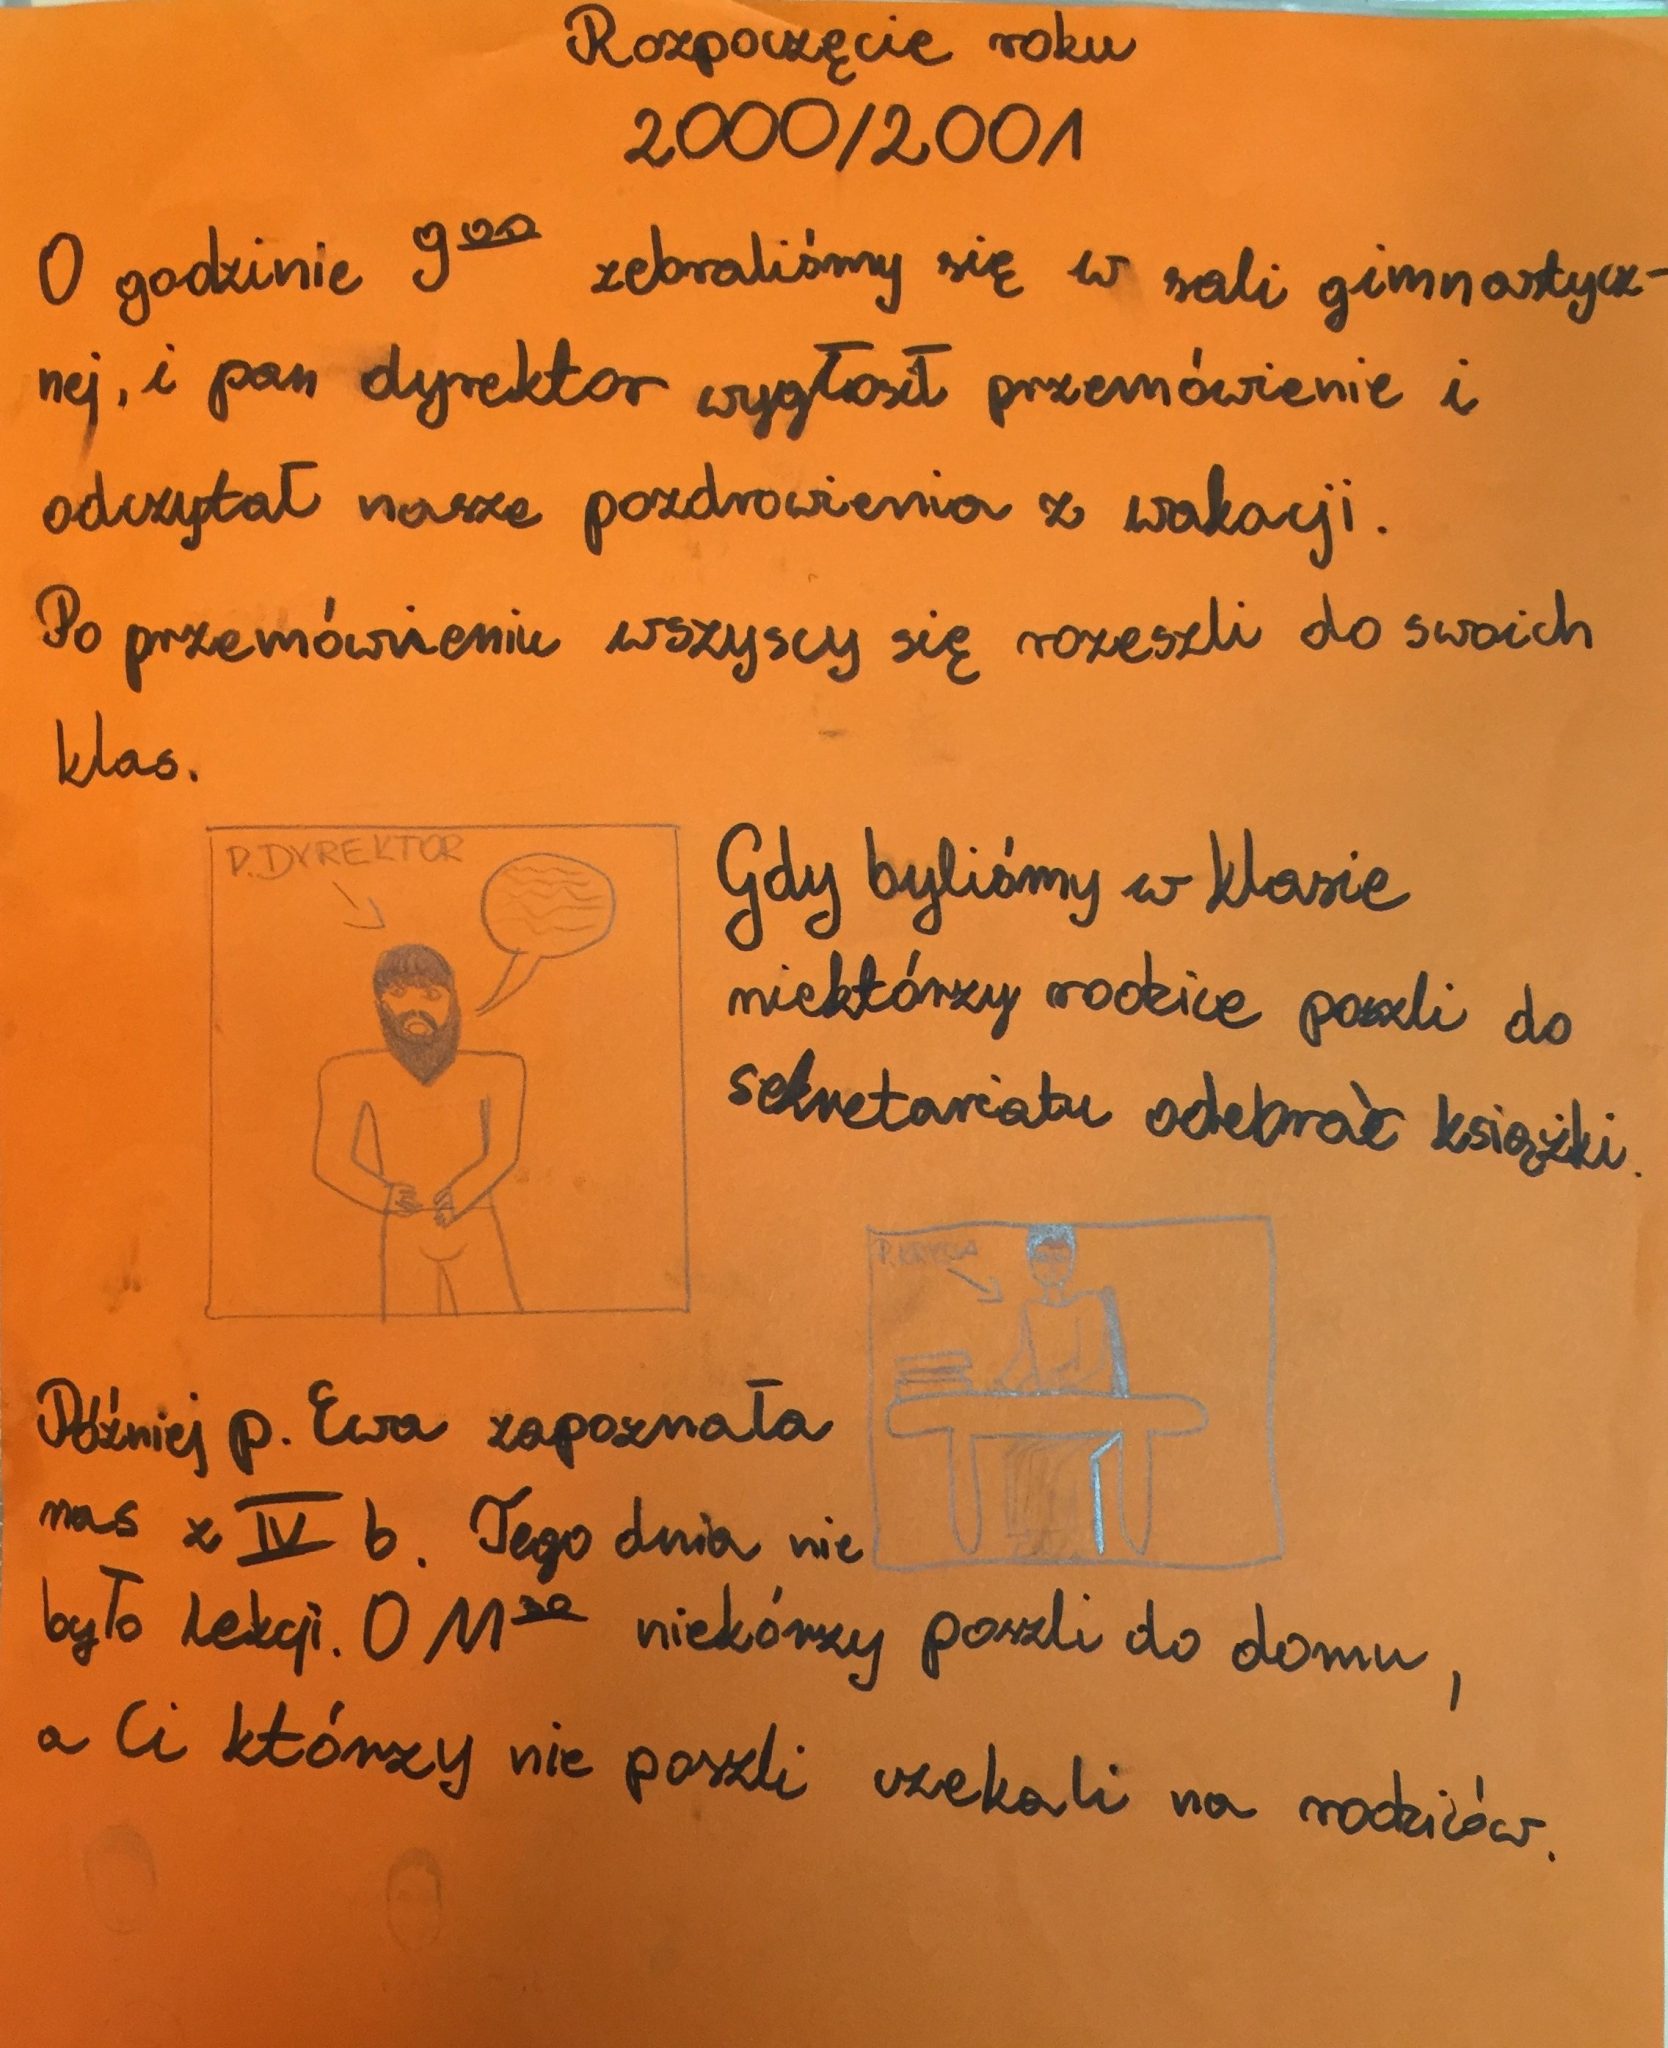 Rozpoczęcie roku
2000/2001
O godzinie 9⁰⁰ zebraliśmy się w sali gimnastycz-
nej, i pan dyrektor wygłosił przemówienie i
odczytał nasze pozdrowienia z wakacji.
Po przemówieniu wszyscy się rozeszli do swoich
klas.
P. DYREKTOR
Gdy byliśmy w klasie
niektórzy rodzice poszli do
sekretariatu odebrać książki.
Później p. Ewa zapoznała
nas z IV b. Tego dnia nie
było lekcji. O 11³⁰ niekórzy poszli do domu,
a Ci którzy nie poszli czekali na rodziców.